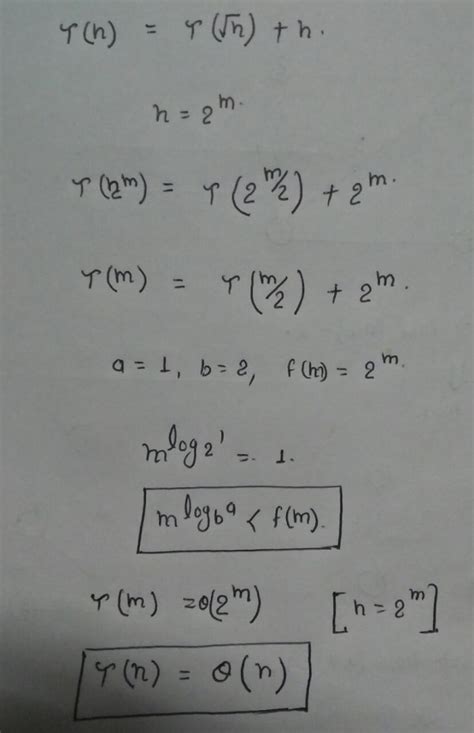 T(n) = T(√n) + n.
n = 2^m.
T(2^m) = T(2^m/2) + 2^m.
T(m) = T(m/2) + 2^m.
a = 1, b = 2, f(m) = 2^m.
m^log2^1 = 1.
m^logb^a < f(m).
T(m) = θ(2^m) [n = 2^m]
T(n) = θ(n)